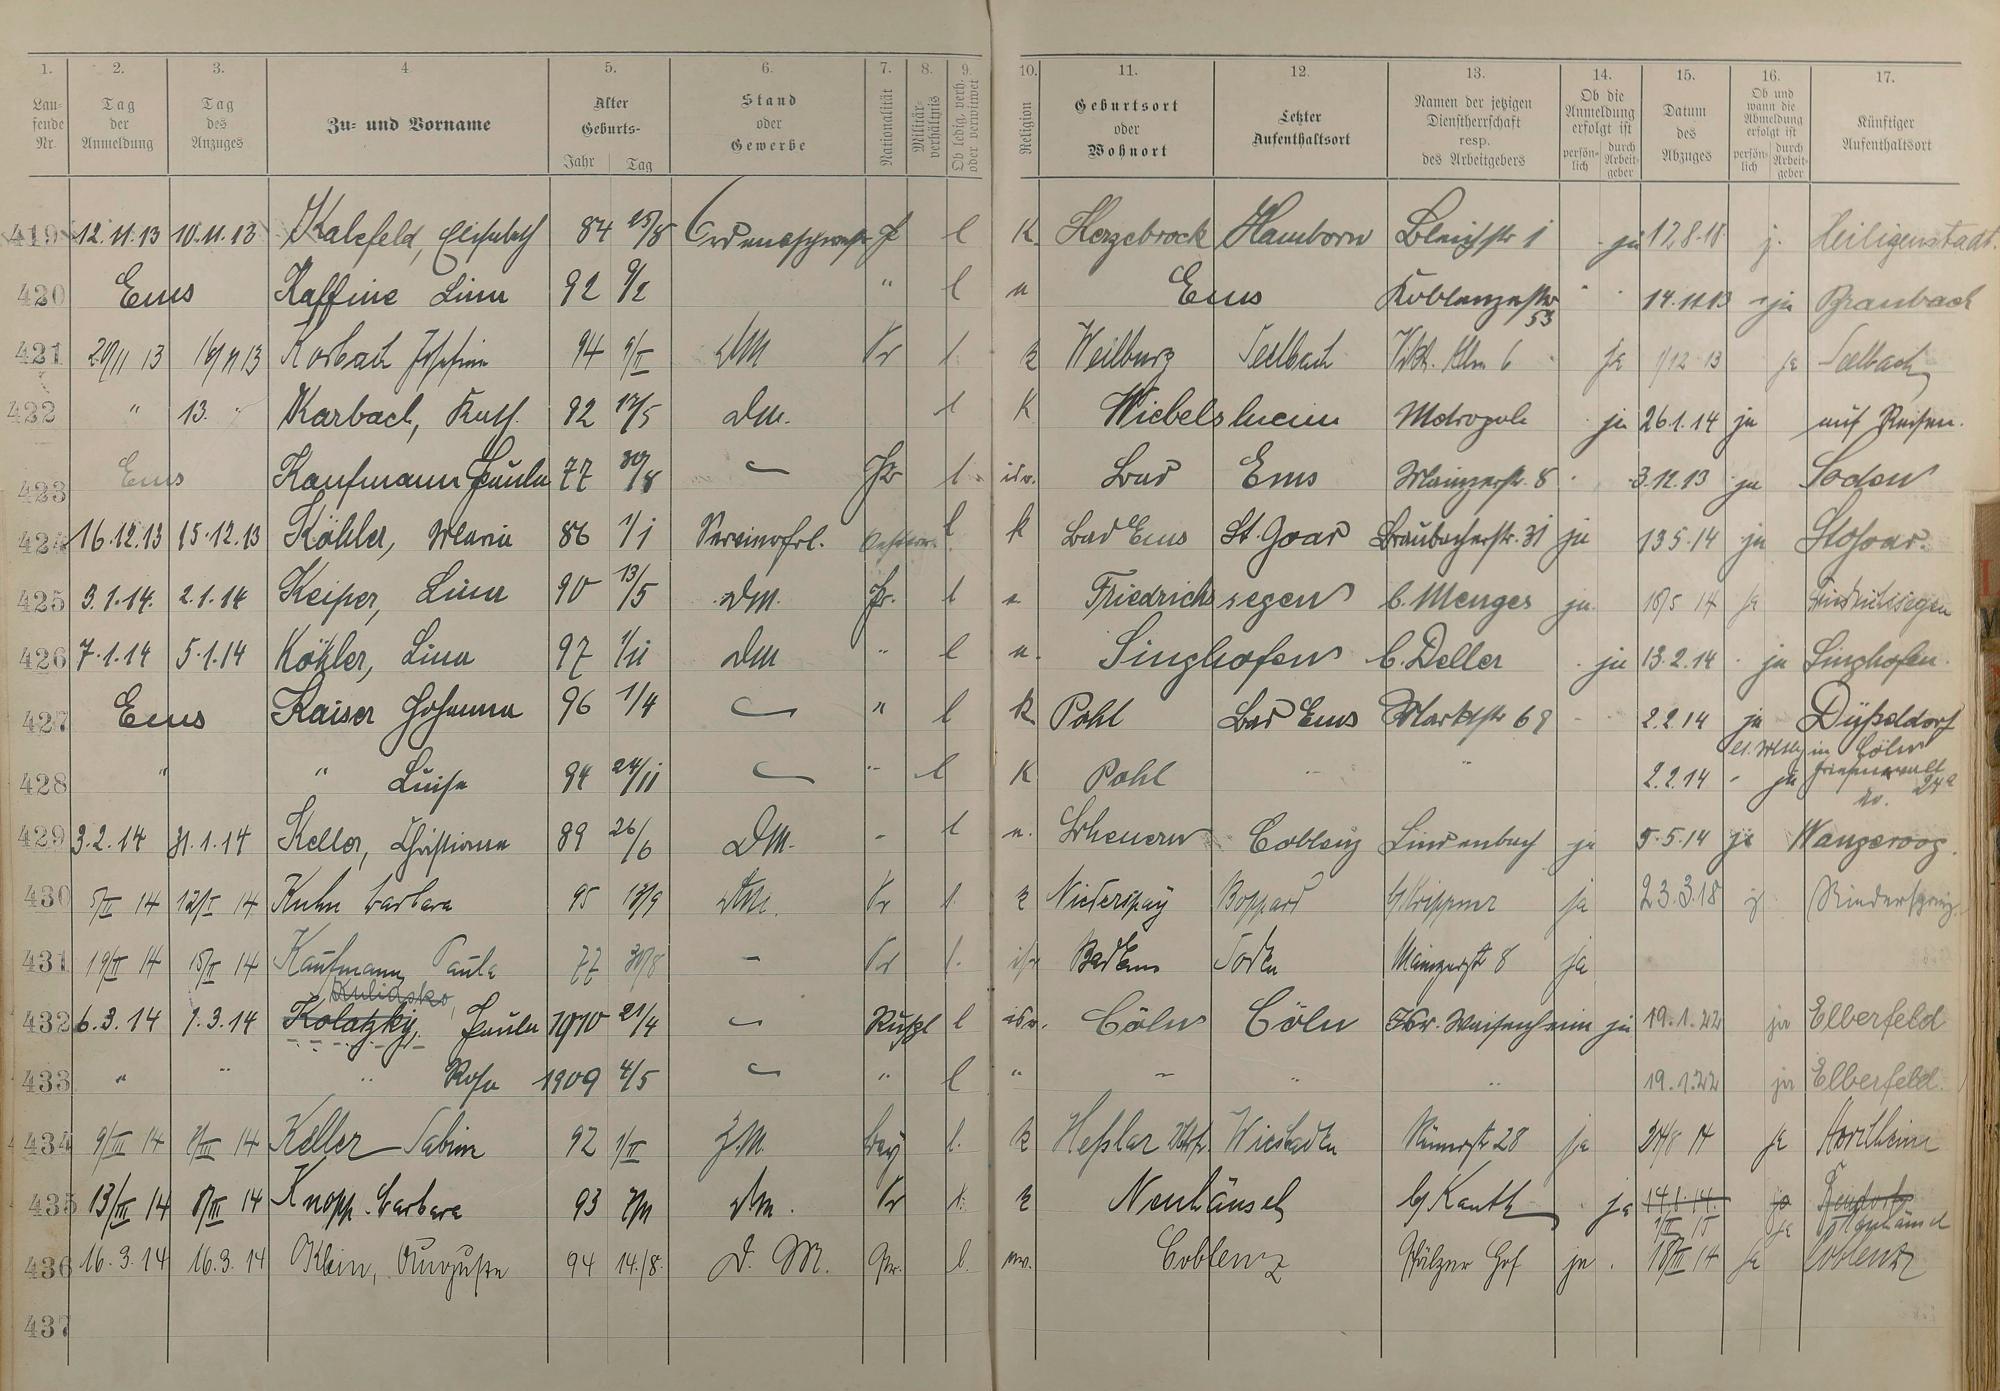 1. 2. 3. 4 5. 6. 7. 8. 9. 10. 11. 12. 13. 14. 15. 16. 17.
Lau- fende Nr. Tag der Anmeldung Tag des Anzuges Zu- und Vorname Alter Geburts- Jahr Tag Stand oder Gewerbe Nationalität Militär- verhältnis Ob ledig, verh. oder verwitwet Religion Geburtsort oder Wohnort Letzter Aufenthaltsort Namen der jetzigen Dienstherrschaft resp. des Arbeitgebers Ob die Anmeldung erfolgt ist persön- lich durch Arbeit- geber Datum des Abzuges Ob und wann die Abmeldung erfolgt ist persön- lich durch Arbeit- geber Künftiger Aufenthaltsort
419 12.11.13 10.11.13 Kalefeld, Elisabeth 84 25/8 Ordensschwester P l K. Herzebrock Hamborn Bleichstr 1 ja 12.8.18 j. Heiligenstadt.
420 Ems Kaffine Lina 92 9/2 " l " Ems Koblenzerstr 53 14.11.13 ja Braubach
421 20/11 13 19/11 13 Korbach Josefine 94 9/II DM Pr l k Weilburg Seelbach ja 1/12 13 ja Seelbach
422 " 13. " Karbach, Kath. 92 17/5 DM. l K Wiebelsheim Metropole ja 26.1.14 ja auf Reisen.
423 Ems Kaufmann Paula 77 30/8 Pr l isr. Bad Ems Mainzerstr. 8 3.12.13 ja Soden
424 16.12.13 15.12.13 Köhler, Maria 86 1/1 l k Bad Ems St. Goar Braubacherstr. 31 ja 13.5.14 ja St. Goar.
425 3.1.14. 2.1.14 Keiper, Lina 90 13/5 DM. Pr. l e. Friedrichssegen b. Menges ja 18/5 14 ja Friedrichssegen
426 7.1.14 5.1.14 Köhler, Lina 97 1/11 DM " l e. Singhofen b. Deller ja 13.2.14 ja Singhofen.
427 Ems Kaiser Johanna 96 1/4 " l k Pohl Bad Ems Marktstr 69 2.2.14 ja Düsseldorf
428 " " Luise 94 24/11 " l K Pohl " " 2.2.14 " ja in Cöln 24a
429 3.2.14 31.1.14 Keller, Christiane 89 26/6 DM. - l e. Scheuern Coblenz Lindenbach ja 5.5.14 ja Wangeroog.
430 5/II 14 12/I 14 Kuhn Barbara 95 13/9 DM. Pr l. k Niederspay Boppard ja 23.3.18 j.
431 19/II 14 15/II 14 Kaufmann Paula 77 30/8 - Pr l. isr Bad Ems Soden Mainzerstr 8 ja
432 6.3.14 1.3.14 Kolatzky, Paula 1910 21/4 Rußl l isr. Cöln Cöln Isr. Waisenheim ja 19.1.22 ja Elberfeld
433 " " " Rosa 1909 4/5 " l " " " " 19.1.22 ja Elberfeld.
434 9/III 14 Keller Sabine 92 1/II Z.M. Bay l. k Heßlar Wiesbaden Römerstr 28 ja 24/8 14 ja
435 13/III 14 8/III 14 Knopp Barbara 93 DM. Pr l. k Neuhäusel b/ Kauth ja 14.1.14. ja Neuhäusel
436 16.3.14 16.3.14 Klein, Auguste 94 14./8. D. M. Pr. l. ev. Coblenz Pfälzer Hof ja. 18/III 14 ja Coblenz
437